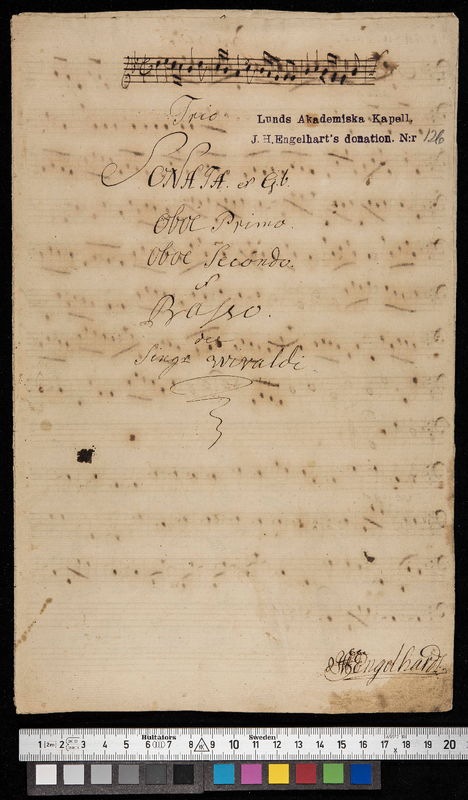 Trio
Lunds Akademiska Kapell,
J. H. Engelhart's donation. N:r 126
SONATA. ex Gb.
Oboe Primo.
Oboe Secondo.
Basso.
del
Sing: Wivaldi.
Engelhardt
1 2 3 4 5 6 7 8 9 10 11 12 13 14 15 16 17 18 19 20
Hultafors Sweden